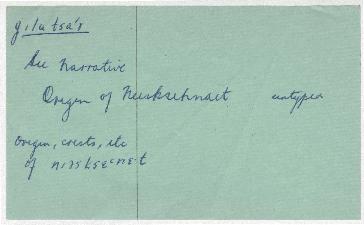 gilutsa's
See narrative
Origen of Neeskschnaet untyped
Origin, crests, etc
of